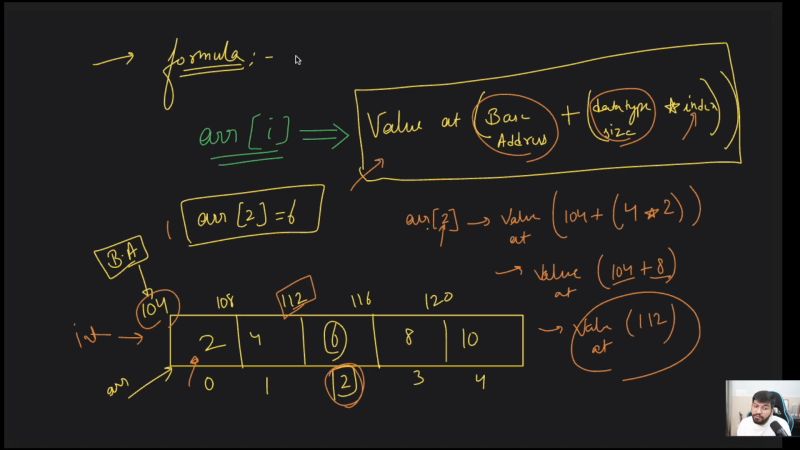 → formula :-
arr [i] ⇒ Value at (Base Address + (datatype size * index))
arr [2] = 6
arr[2] → Value at (104 + (4 * 2))
→ Value at (104 + 8)
→ Value at (112)
B.A
104 108 112 116 120
int → 2 4 6 8 10
arr 0 1 2 3 4